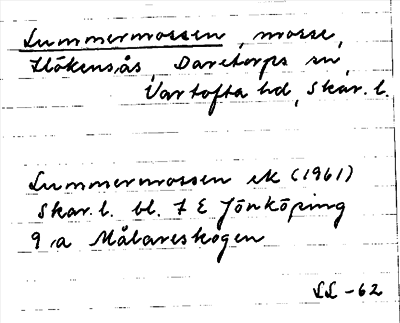 Lummermossen, mosse,
Hökensås, Daretorps sn,
Vartofta hd, Skar. l.
Lummermossen ek (1961)
Skar. l. bl. 7 E Jönköping
9 a Målareskogen
LL -62